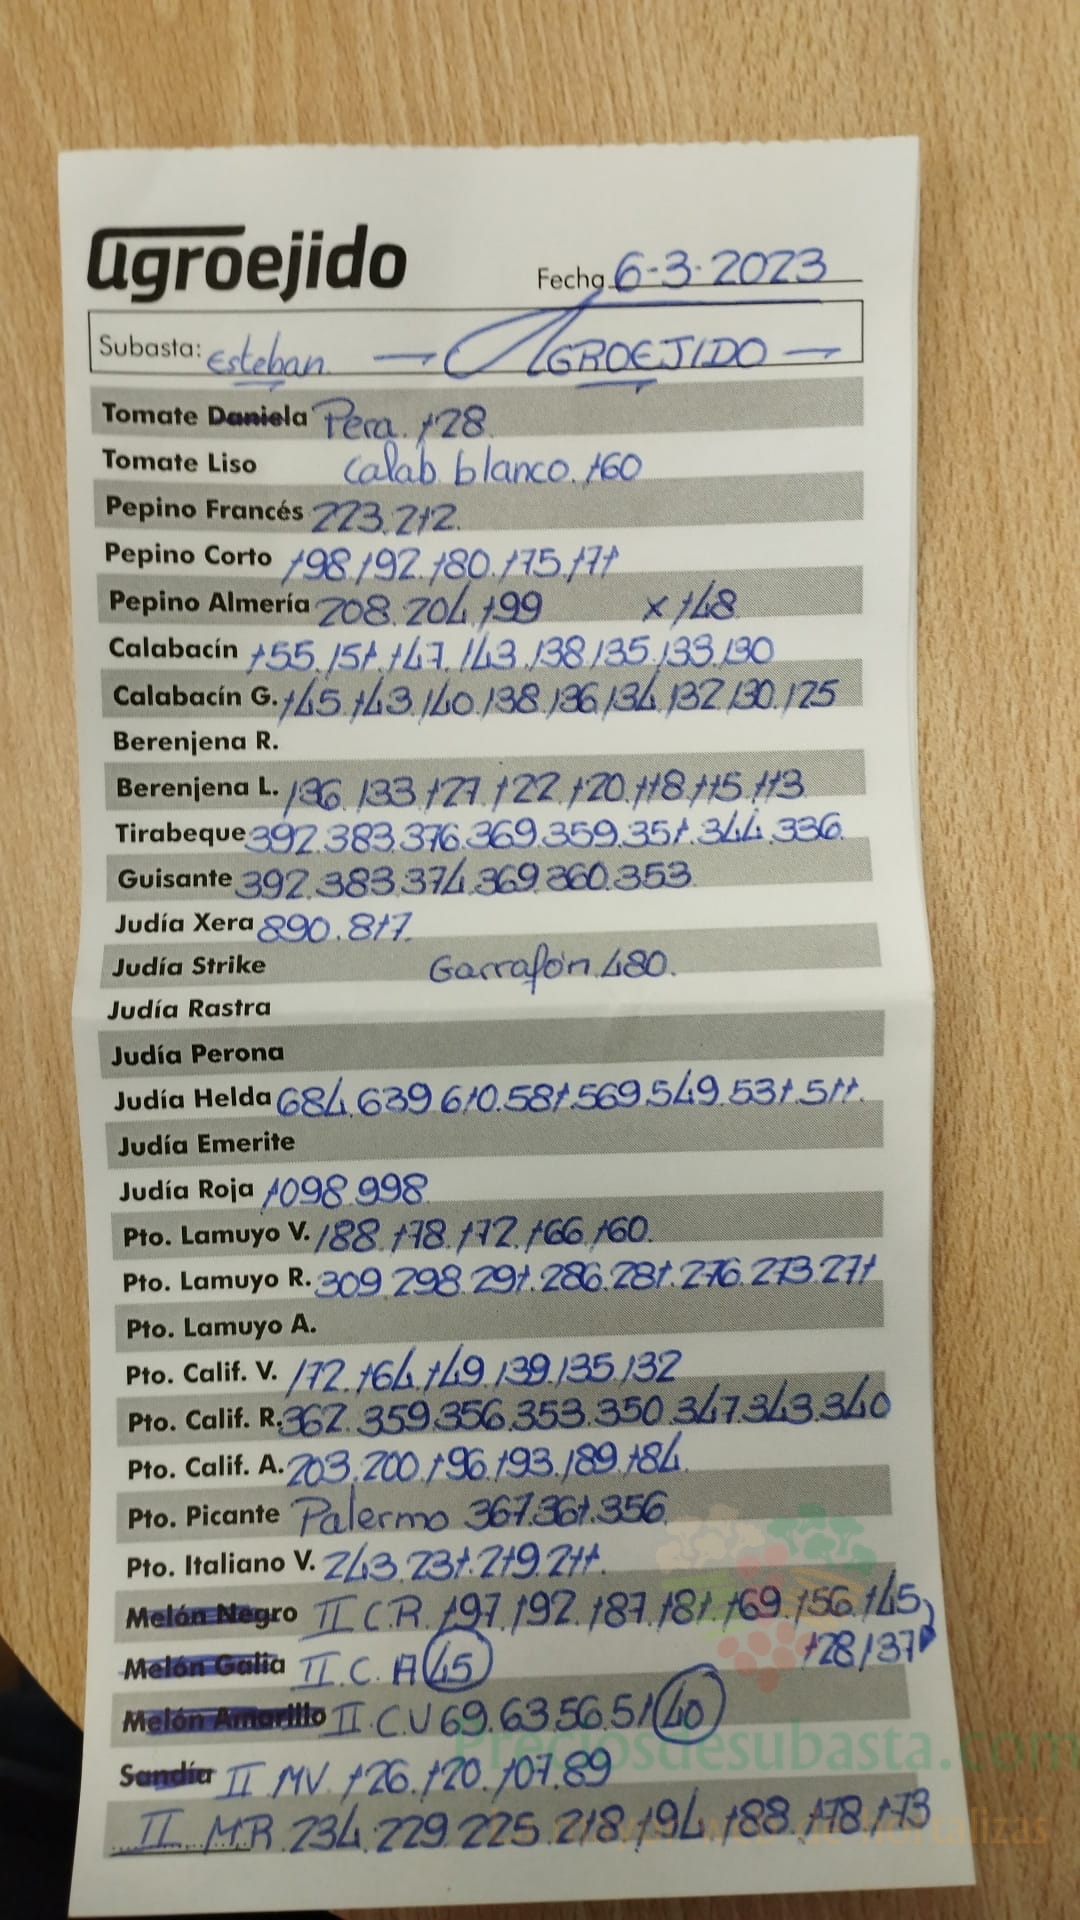 agroejido
Fecha 6-3-2023
Subasta: Esteban — AGROEJIDO —
Tomate Daniela Pera. 128
Tomate Liso Calab blanco. 160
Pepino Francés 223.212.
Pepino Corto 198.192.180.175.171
Pepino Almería 208.204.199 x 148
Calabacín 155.151.147.143.138.135.133.130
Calabacín G. 145.143.140.138.136.134.132.130.125
Berenjena R.
Berenjena L. 136.133.127.122.120.118.115.113
Tirabeque 392.383.376.369.359.351.344.336.
Guisante 392.383.374.369.360.353
Judía Xera 890.817.
Judía Strike Garrafón 480.
Judía Rastra
Judía Perona
Judía Helda 684.639.610.581.569.549.531.511.
Judía Emerite
Judía Roja 1098.998
Pto. Lamuyo V. 188.178.172.166.160.
Pto. Lamuyo R. 309.298.291.286.281.276.273.271
Pto. Lamuyo A.
Pto. Calif. V. 172.164.149.139.135.132
Pto. Calif. R. 362.359.356.353.350.347.343.340
Pto. Calif. A. 203.200.196.193.189.184
Pto. Picante Palermo 367.361.356
Pto. Italiano V. 243.231.219.211.
Melón Negro II C.R. 197.192.187.181.169.156.145
128/137
Melón Galia II.C. A 45
Melón Amarillo II.C.V 69.63.56.51 40
Preciosdesubasta.com
Sandía II MV 126.120.107.89
II MR 234.229.225.218.194.188.178.173
hortalizas